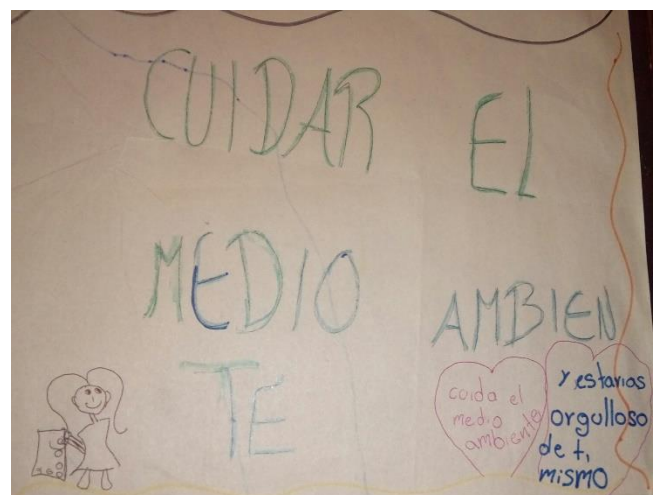 CUIDAR EL
MEDIO AMBIEN
TE
coida el
medio
ambiente
y estarias
orgulloso
de ti
mismo